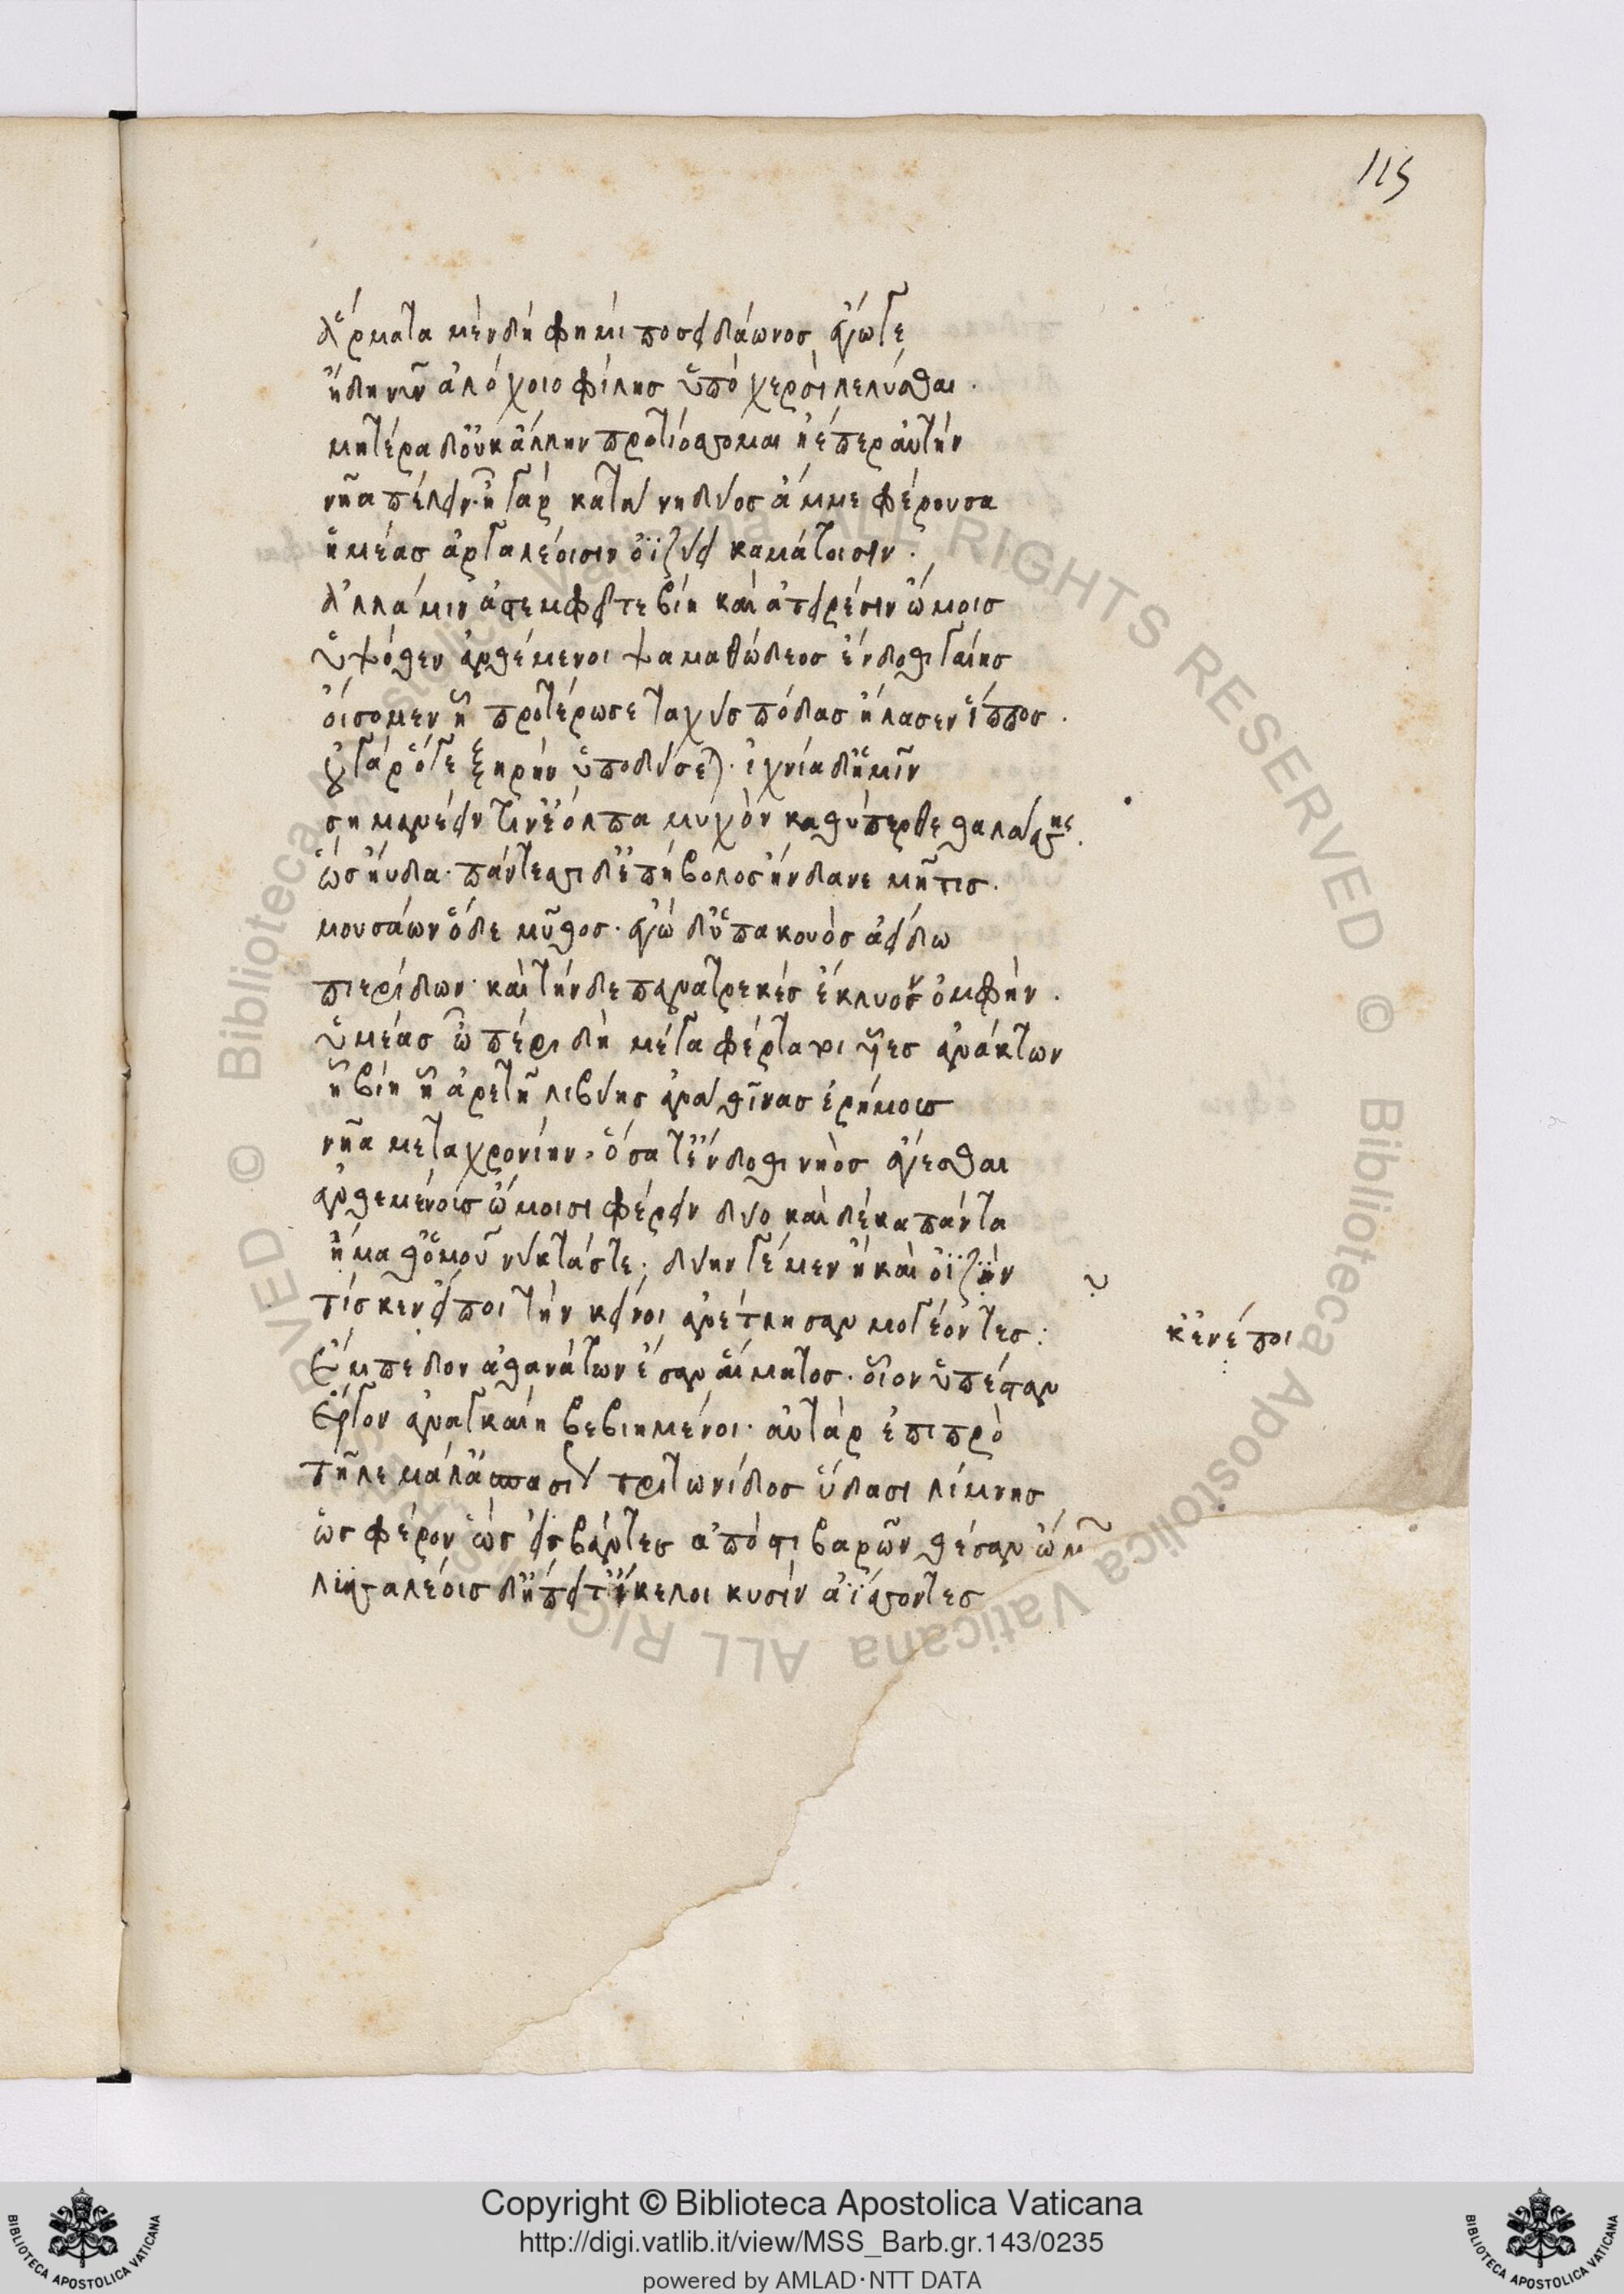 115
ἅρματα μὲν δή φημι ποσειδάωνος ἔγωγε
ἤδη νῦν ἀλόχοιο φίλης ὑπὸ χερσὶ λελύσθαι.
μητέρα δ' οὐκ ἄλλην προτιόσσομαι ἠέ περ αὐτὴν
νῆα πέλειν. ἦ γὰρ κατὰ νηδύος ἄμμε φέρουσα
ἡμέας ἀργαλέοισιν ὀϊζύει καμάτοισιν.
ἀλλά μιν ἀστεμφεῖ τε βίῃ καὶ ἀτειρέσιν ὤμοις
ὑψόθεν ἀνθέμενοι ψαμαθώδεος ἔνδοθι γαίης
οἴσομεν ᾗ προτέρωσε ταχὺς πόδας ἤλασεν ἵππος.
οὐ γὰρ ὅγε ξηρὴν ὑποδύσεται. ἰχνία δ' ἡμῖν
σημανέειν τιν' ἔολπα μυχὸν καθύπερθε θαλάσσης.
ὣς ηὔδα. πάντεσσι δ' ἐπήβολος ἥνδανε μῆτις.
μουσάων ὅδε μῦθος. ἐγὼ δ' ὑπακουὸς ἀείδω
πιερίδων. καὶ τήνδε πανατρεκὲς ἔκλυον ὀμφήν.
ὑμέας ὦ πέρι δὴ μέγα φέρτατοι υἷες ἀνάκτων
ᾗ βίῃ ᾗ ἀρετῇ λιβύης ἀνὰ θῖνας ἐρήμους
νῆα μεταχρονίην. ὅσα τ' ἔνδοθι νηὸς ἄγεσθαι
ἀνθεμένοις ὤμοισι φέρειν δύο καὶ δέκα πάντα
ἤμαθ' ὁμοῦ νύκτάς τε. δύην γε μὲν ἢ καὶ ὀϊζὴν
τίς κεν εἴποι τὴν κεῖνοι ἀνέτλησαν μογέοντες:
κ' ἐνέποι
ἔμπεδον ἀθανάτων ἔσαν αἵματος. οἷον ὑπέσταν
ἔργον ἀναγκαίῃ βεβιημένοι. αὐτὰρ ἐπιπρὸ
τῆλε μάλ' ἄσπασίως τριτωνίδος ὕδασι λίμνης
ὡς φέρον ὣς εἰσβάντες ἀπὸ στιβαρῶν θέσαν ὤμων
λυσσαλέοις δ' ἤπειτ' ἴκελοι κυσὶν ἀΐσσοντες
Copyright © Biblioteca Apostolica Vaticana
http://digi.vatlib.it/view/MSS_Barb.gr.143/0235
powered by AMLAD·NTT DATA